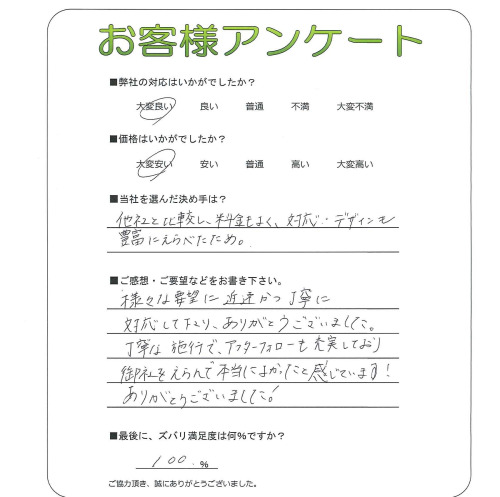 お客様アンケート
■弊社の対応はいかがでしたか？
大変良い 良い 普通 不満 大変不満
■価格はいかがでしたか？
大変安い 安い 普通 高い 大変高い
■当社を選んだ決め手は？
他社と比較し、料金もよく、対応・デザインも
豊富にえらべたため。
■ご感想・ご要望などをお書き下さい。
様々な要望に迅速かつ丁寧に
対応して下さり、ありがとうございました。
丁寧な施行で、アフターフォローも充実しており
御社をえらんで本当によかったと感じています！
ありがとうございました！
■最後に、ズバリ満足度は何%ですか？
100. %
ご協力頂き、誠にありがとうございました。